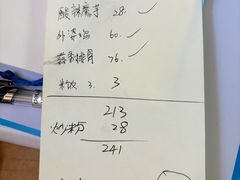 酸辣魔芋 28.
外婆鸡 60.
蒜香排骨 76.
米饭 3. 3
213
炒粉 28
241